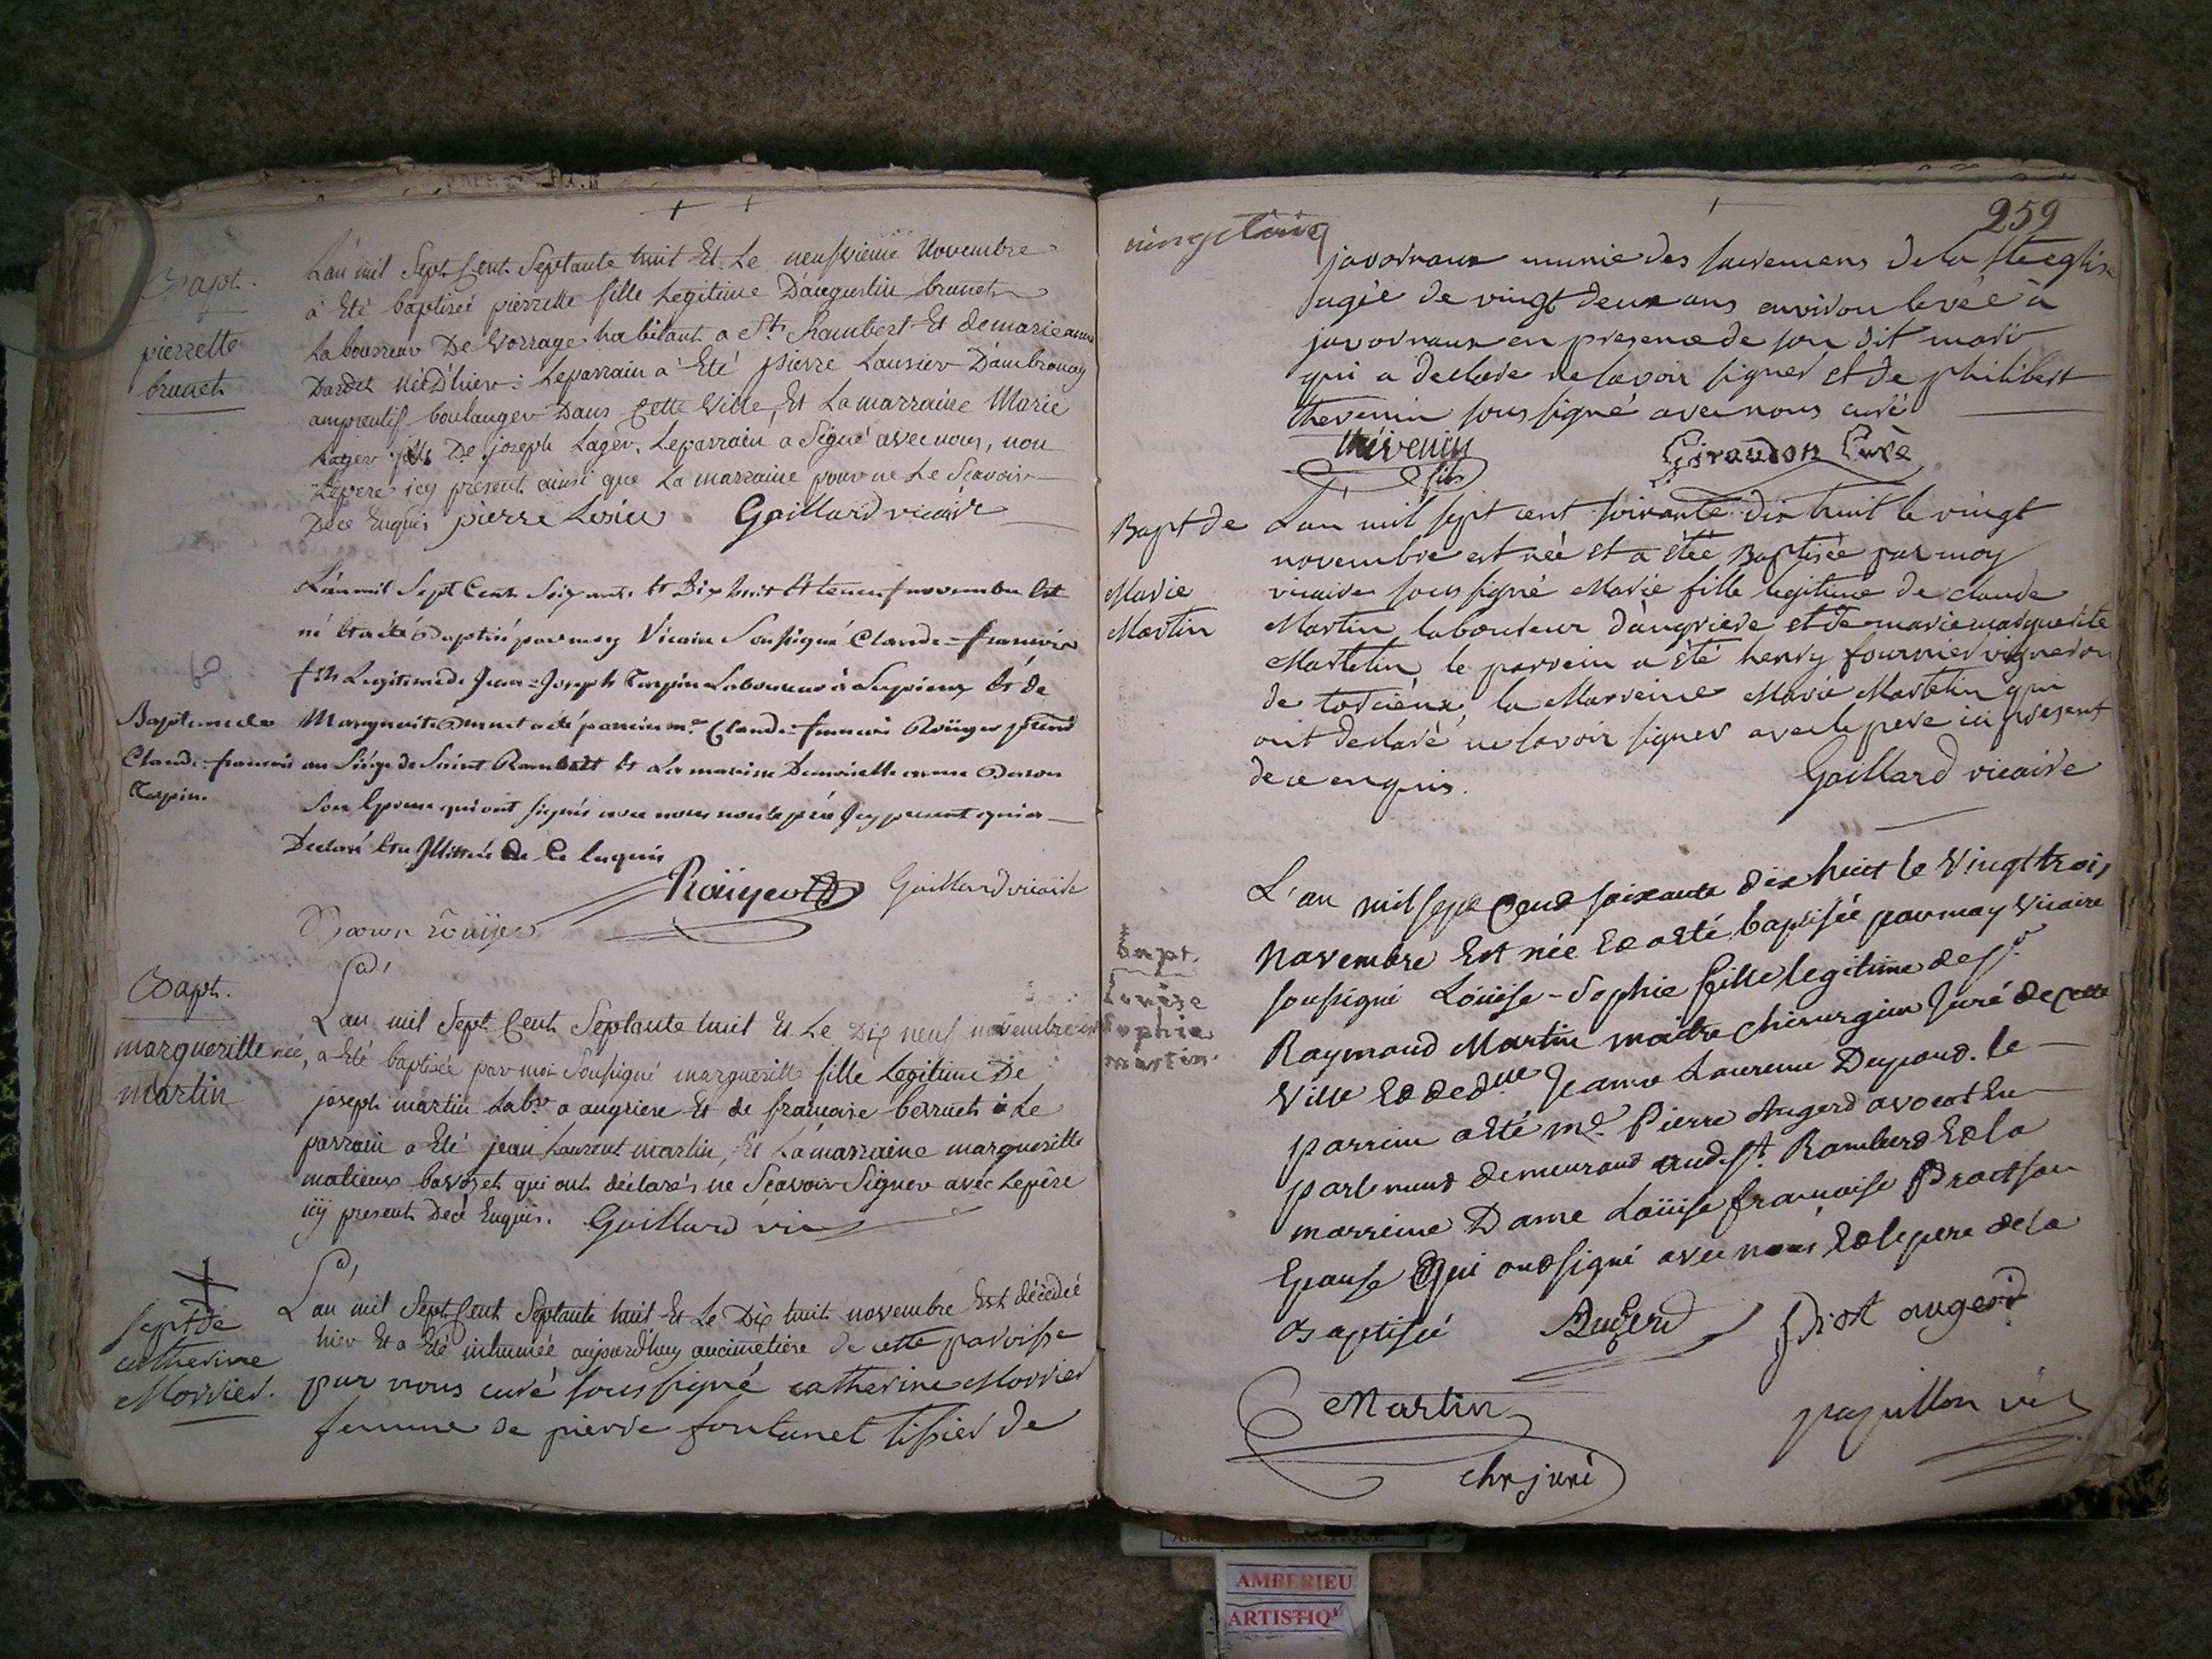 Bapt.
pierrette
brunet
L'an mil Sept Cent Septante huit Et Le neufvieme Novembre
à Eté baptisée pierrette fille Legitime D'augustin brunet
Laboureur De Vorrage habitant a St. Rambert Et de marieanne
Dardet néé D'hier : Leparrain a Eté pierre Lausier D'ambronay
amprentif boulanger Dans Cette Ville, Et La marraine Marie
Lager fille De joseph Lager. Leparrain a Signé avec nous, non
Lepere icy présent ainsi que La marraine pour ne Le Scavoir
Dece Enquis pierre Gaillard vicaire
Baptemede
Claude-francois
Carpin.
L'an mil Sept Cent Soixante et Dix huit et le neuf novembre Est
né Et a été Baptisé par moy Vicaire Soussigné Claude=francois
fils Legitime de Jean=Joseph Carpin Laboureur à et de
Marguerite a été parrain me. Claude-francois Roüyer
au Siége de Saint Rambert et La maraine Demoiselle anne
Son Epouse qui ont signés avec nous non le père Icy present qui a
Declaré Etre Illitéré De Ce Enquis
Roüyer Gaillard vicaire
roüyer
Bapt.
margueritte
martin
L'an mil Sept Cent Septante huit Et Le Dix neuf novembre est
née, a Eté baptisée par moi Soussigné margueritte fille Legitime De
joseph martin Labr. a augriere Et de francoise berruet : Le
parrain a Eté jean Laurent martin, Et La marraine margueritte
matieux bavozet qui ont déclarés ne Scavoir Signer avec Lepère
icy present Decé Enquis. Gaillard vic
Sept de
catherine
Morrier.
L'an mil Sept Cent Septante huit Et Le Dix huit novembre Est décédée
hier Et a Eté inhumée aujourd'huy au cimetière de cette paroisse
par nous curé soussigné catherine Morrier
femme de pierre fontanet tissier de
259
vingt cinq
javornaux munie des sacremens de la Ste eglise
agée de vingt deux ans environ levée à
javornaux en presence de son dit mari
qui a declaré ne savoir signer et de philibert
thevenin soussigné avec nous curé
thévenin fils Giraudon Curé
Bapt de
Marie
Martin
L'an mil sept cent soixante dix huit le vingt
novembre est née et a étée Baptisée par moy
vicaire soussigné Marie fille legitime de claude
Martin laboureur d'angriere et de marie marguerite
Martelin, le parrein a été henry fournier vigneron
de torcieux, la Marreine Marie Martelin qui
ont declaré ne savoir signer avec le pere ici present
de ce enquis. Gaillard vicaire
Bapt.
Louise
Sophie
martin.
L'an mil sept Cent soixante dix huit le vingt trois
Novembre Est née Et a été baptisée par moy Vicaire
soussigné Loüise-Sophie fille legitime de sr.
Raymond Martin maitre chirurgien Juré de cette
Ville Et de dlle Jeanne Laurence Dupond. le
parrein a été me. Pierre Augerd avocat En
parlement demeurant audt St. Rambert Et la
marreine Dame Loüise françoise Diot son
Epouse Qui ont signé avec nous Et le pere de la
Baptisée Augerd Diot augerd
Martin papillon vic
chr juré
AMBERIEU
ARTISTIQ